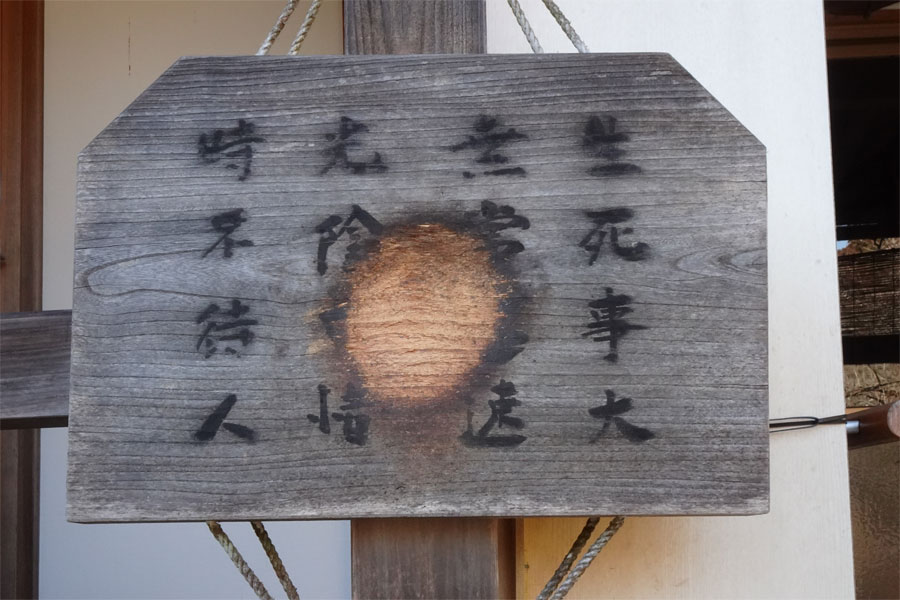 生死事大
無常速
光陰惜
時不待人